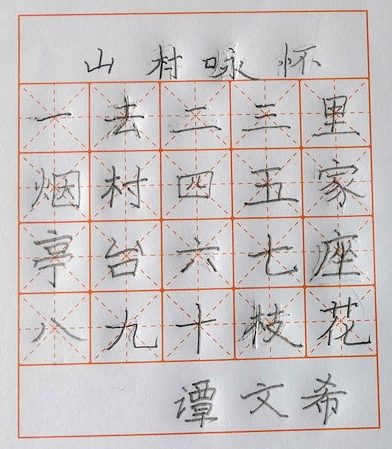 山村咏怀
一去二三里
烟村四五家
亭台六七座
八九十枝花
谭文希